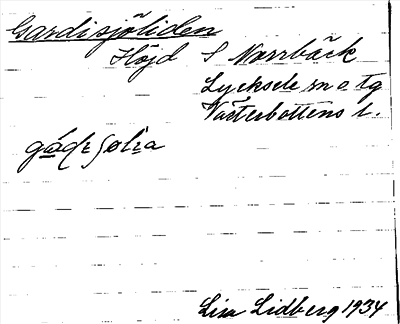 Gardisjöliden
Höjd S Norrbäck
Lycksele sn o. tg
Västerbottens l.
Lisa Lidberg 1934